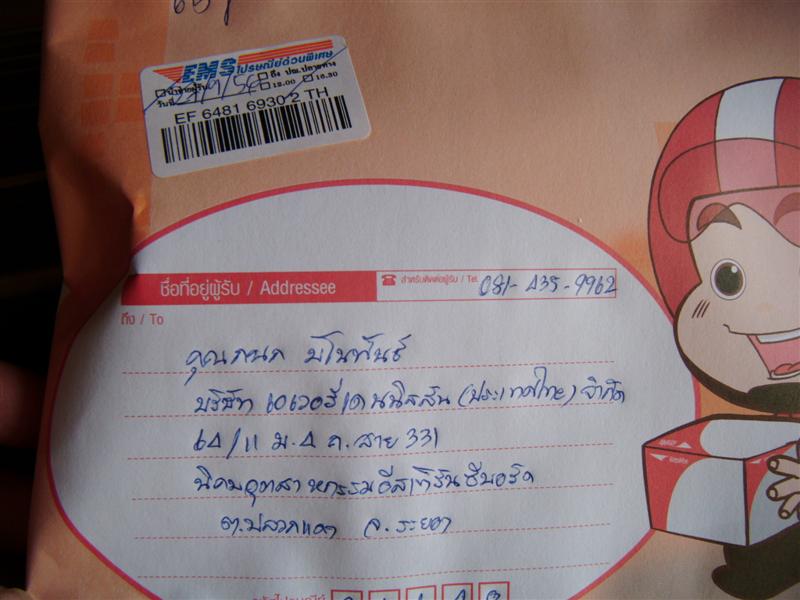 EMS ไปรษณีย์ด่วนพิเศษ
ถึง ปณ.ปลายทาง
นำจ่ายผู้รับ 12.00 16.30
วันที่
EF 6481 6930 2 TH
ชื่อที่อยู่ผู้รับ / Addressee
สำหรับติดต่อผู้รับ / Tel. 081-435-9962
ถึง / To
คุณกนก มโนพันธ์
บริษัท เอเวอรี่ เดนนิสสัน (ประเทศไทย) จำกัด
64/11 ม.4 ถ.สาย 331
นิคมอุตสาหกรรมอีสเทิร์นซีบอร์ด
ต.ปลวกแดง จ.ระยอง
รหัสไปรษณีย์